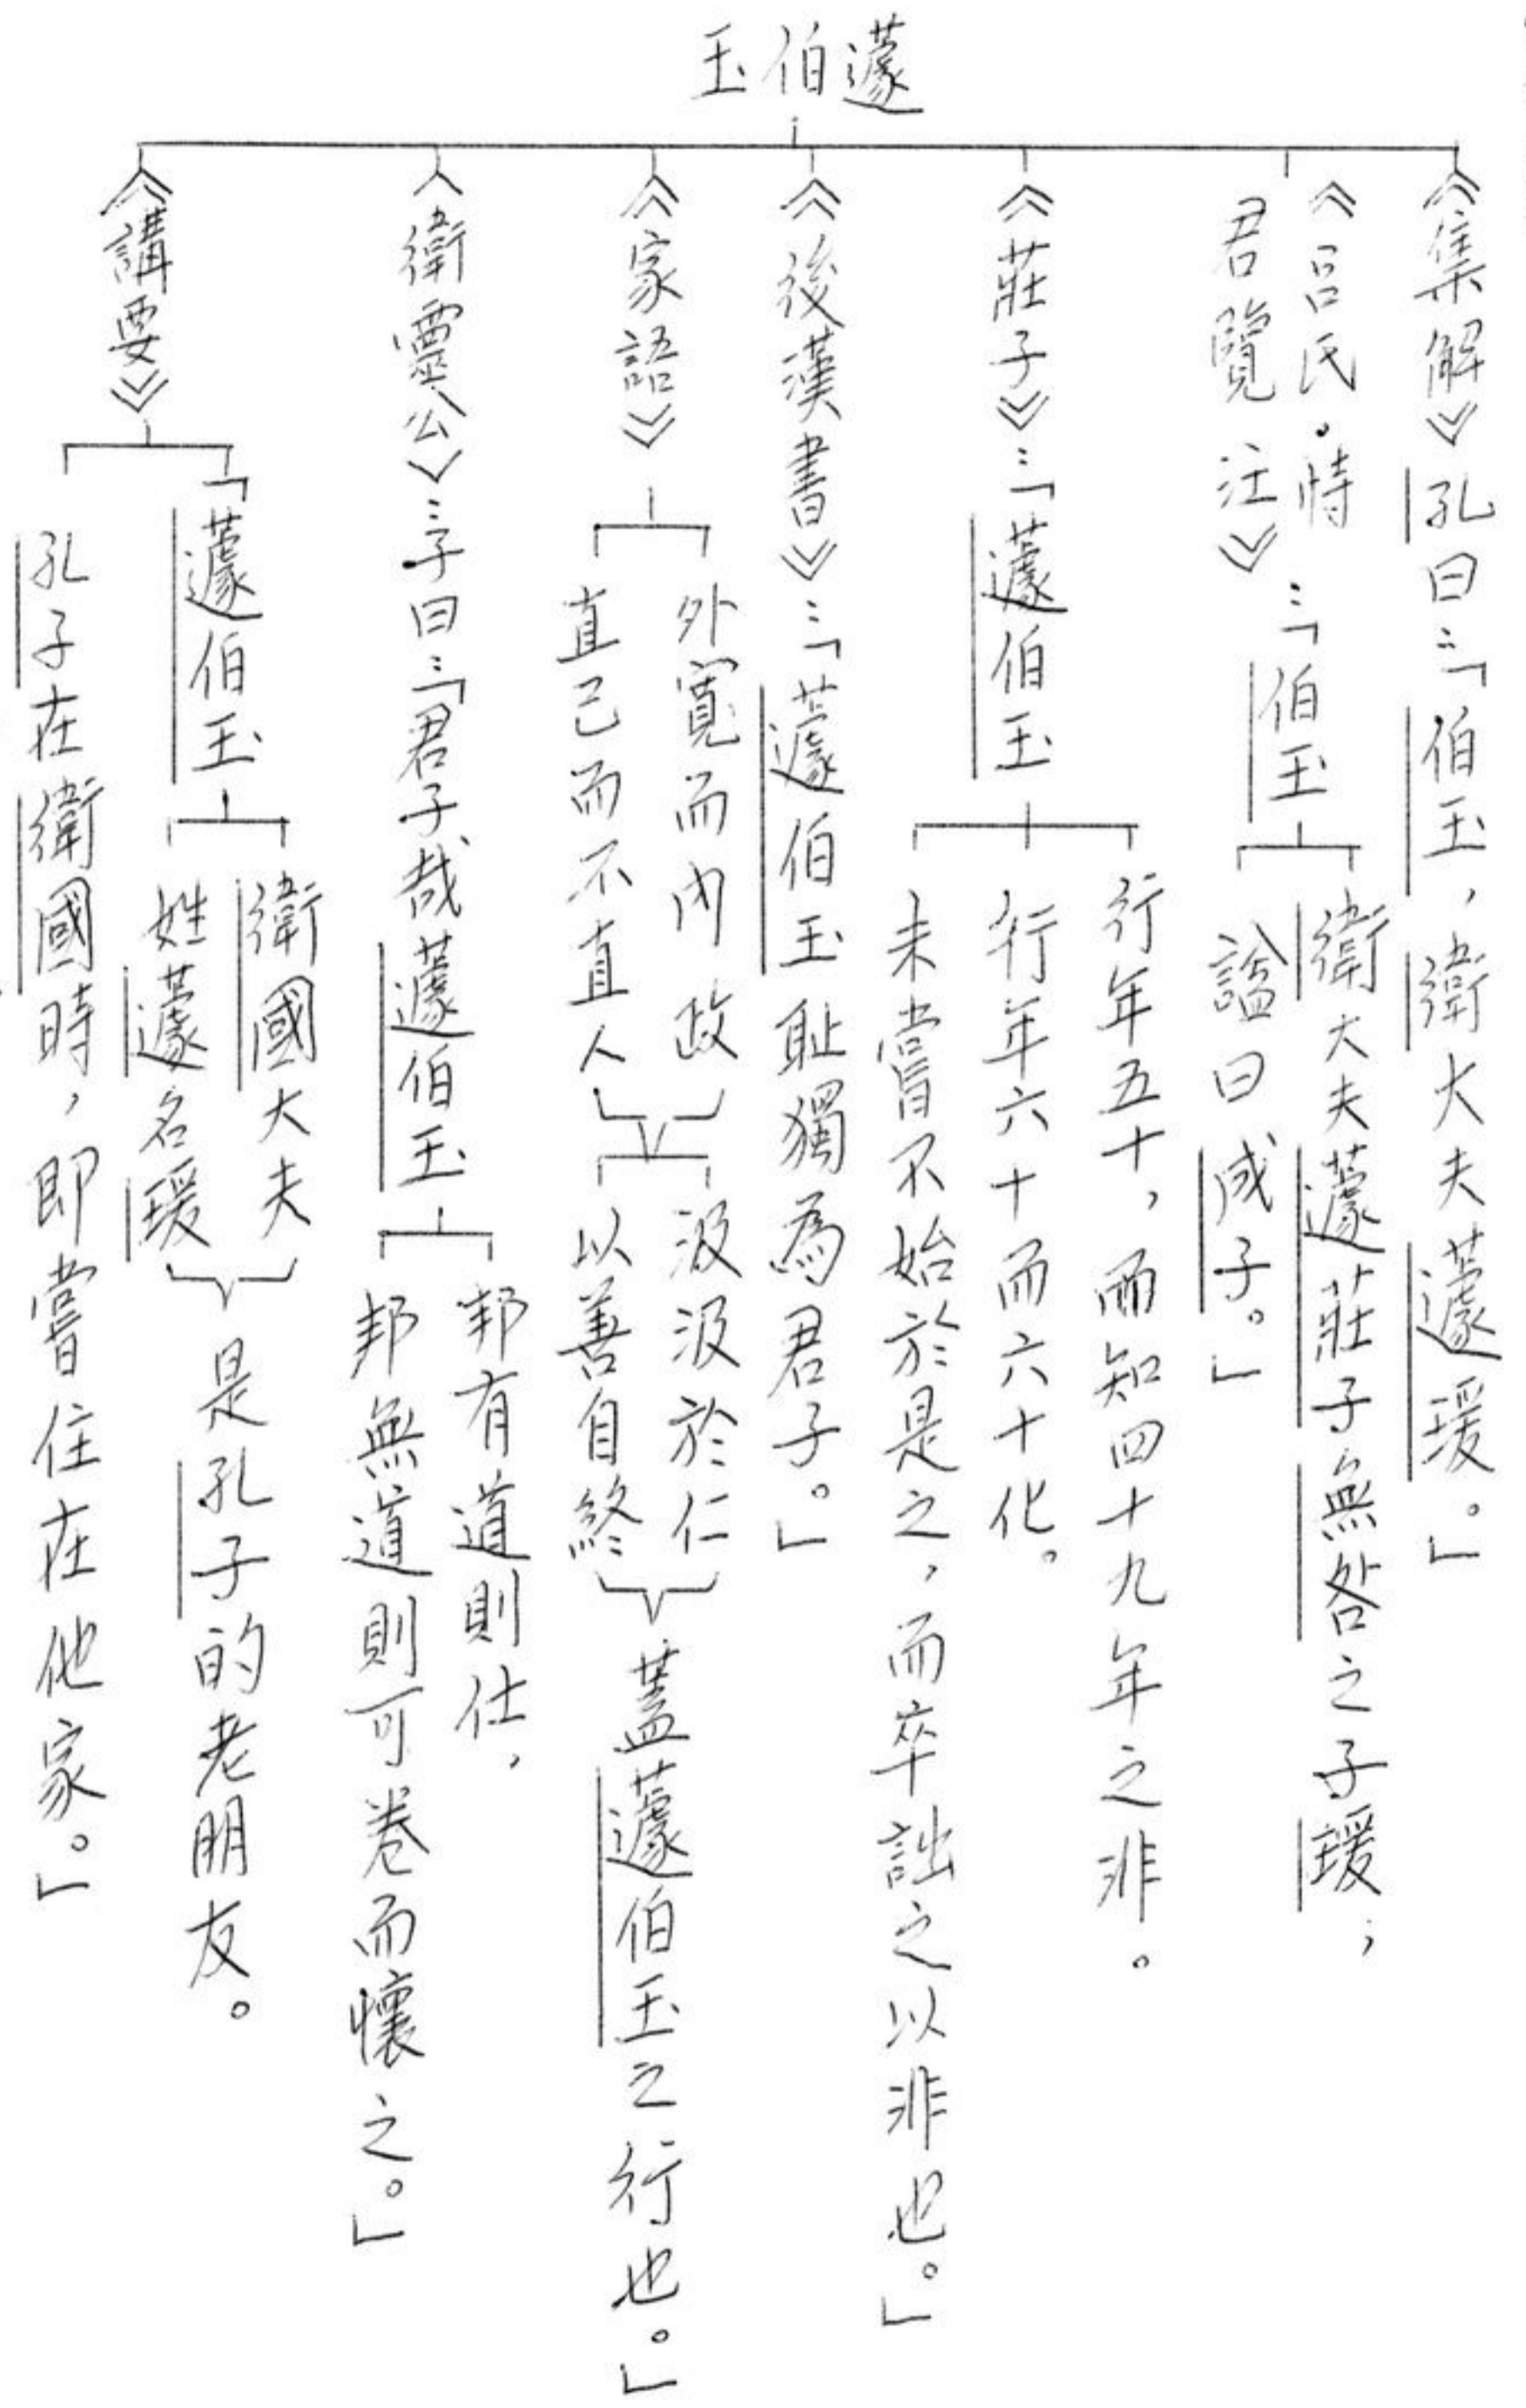 蘧伯玉
《集解》孔曰：「伯玉，衛大夫蘧瑗。」
《呂氏．恃
君覽 注》：「伯玉
衛大夫蘧莊子無咎之子瑗；
諡曰成子。」
《莊子》：「蘧伯玉
行年五十，而知四十九年之非。
行年六十而六十化。
未嘗不始於是之，而卒詘之以非也。」
《後漢書》：「蘧伯玉恥獨為君子。」
《家語》
外寬而內政
直己而不直人
汲汲於仁
以善自終
蓋蘧伯玉之行也。」
〈衛靈公〉：子曰：「君子哉蘧伯玉
邦有道則仕，
邦無道則可卷而懷之。」
《講要》
「蘧伯玉
衛國大夫
姓蘧名瑗
是孔子的老朋友。
孔子在衛國時，即嘗住在他家。」